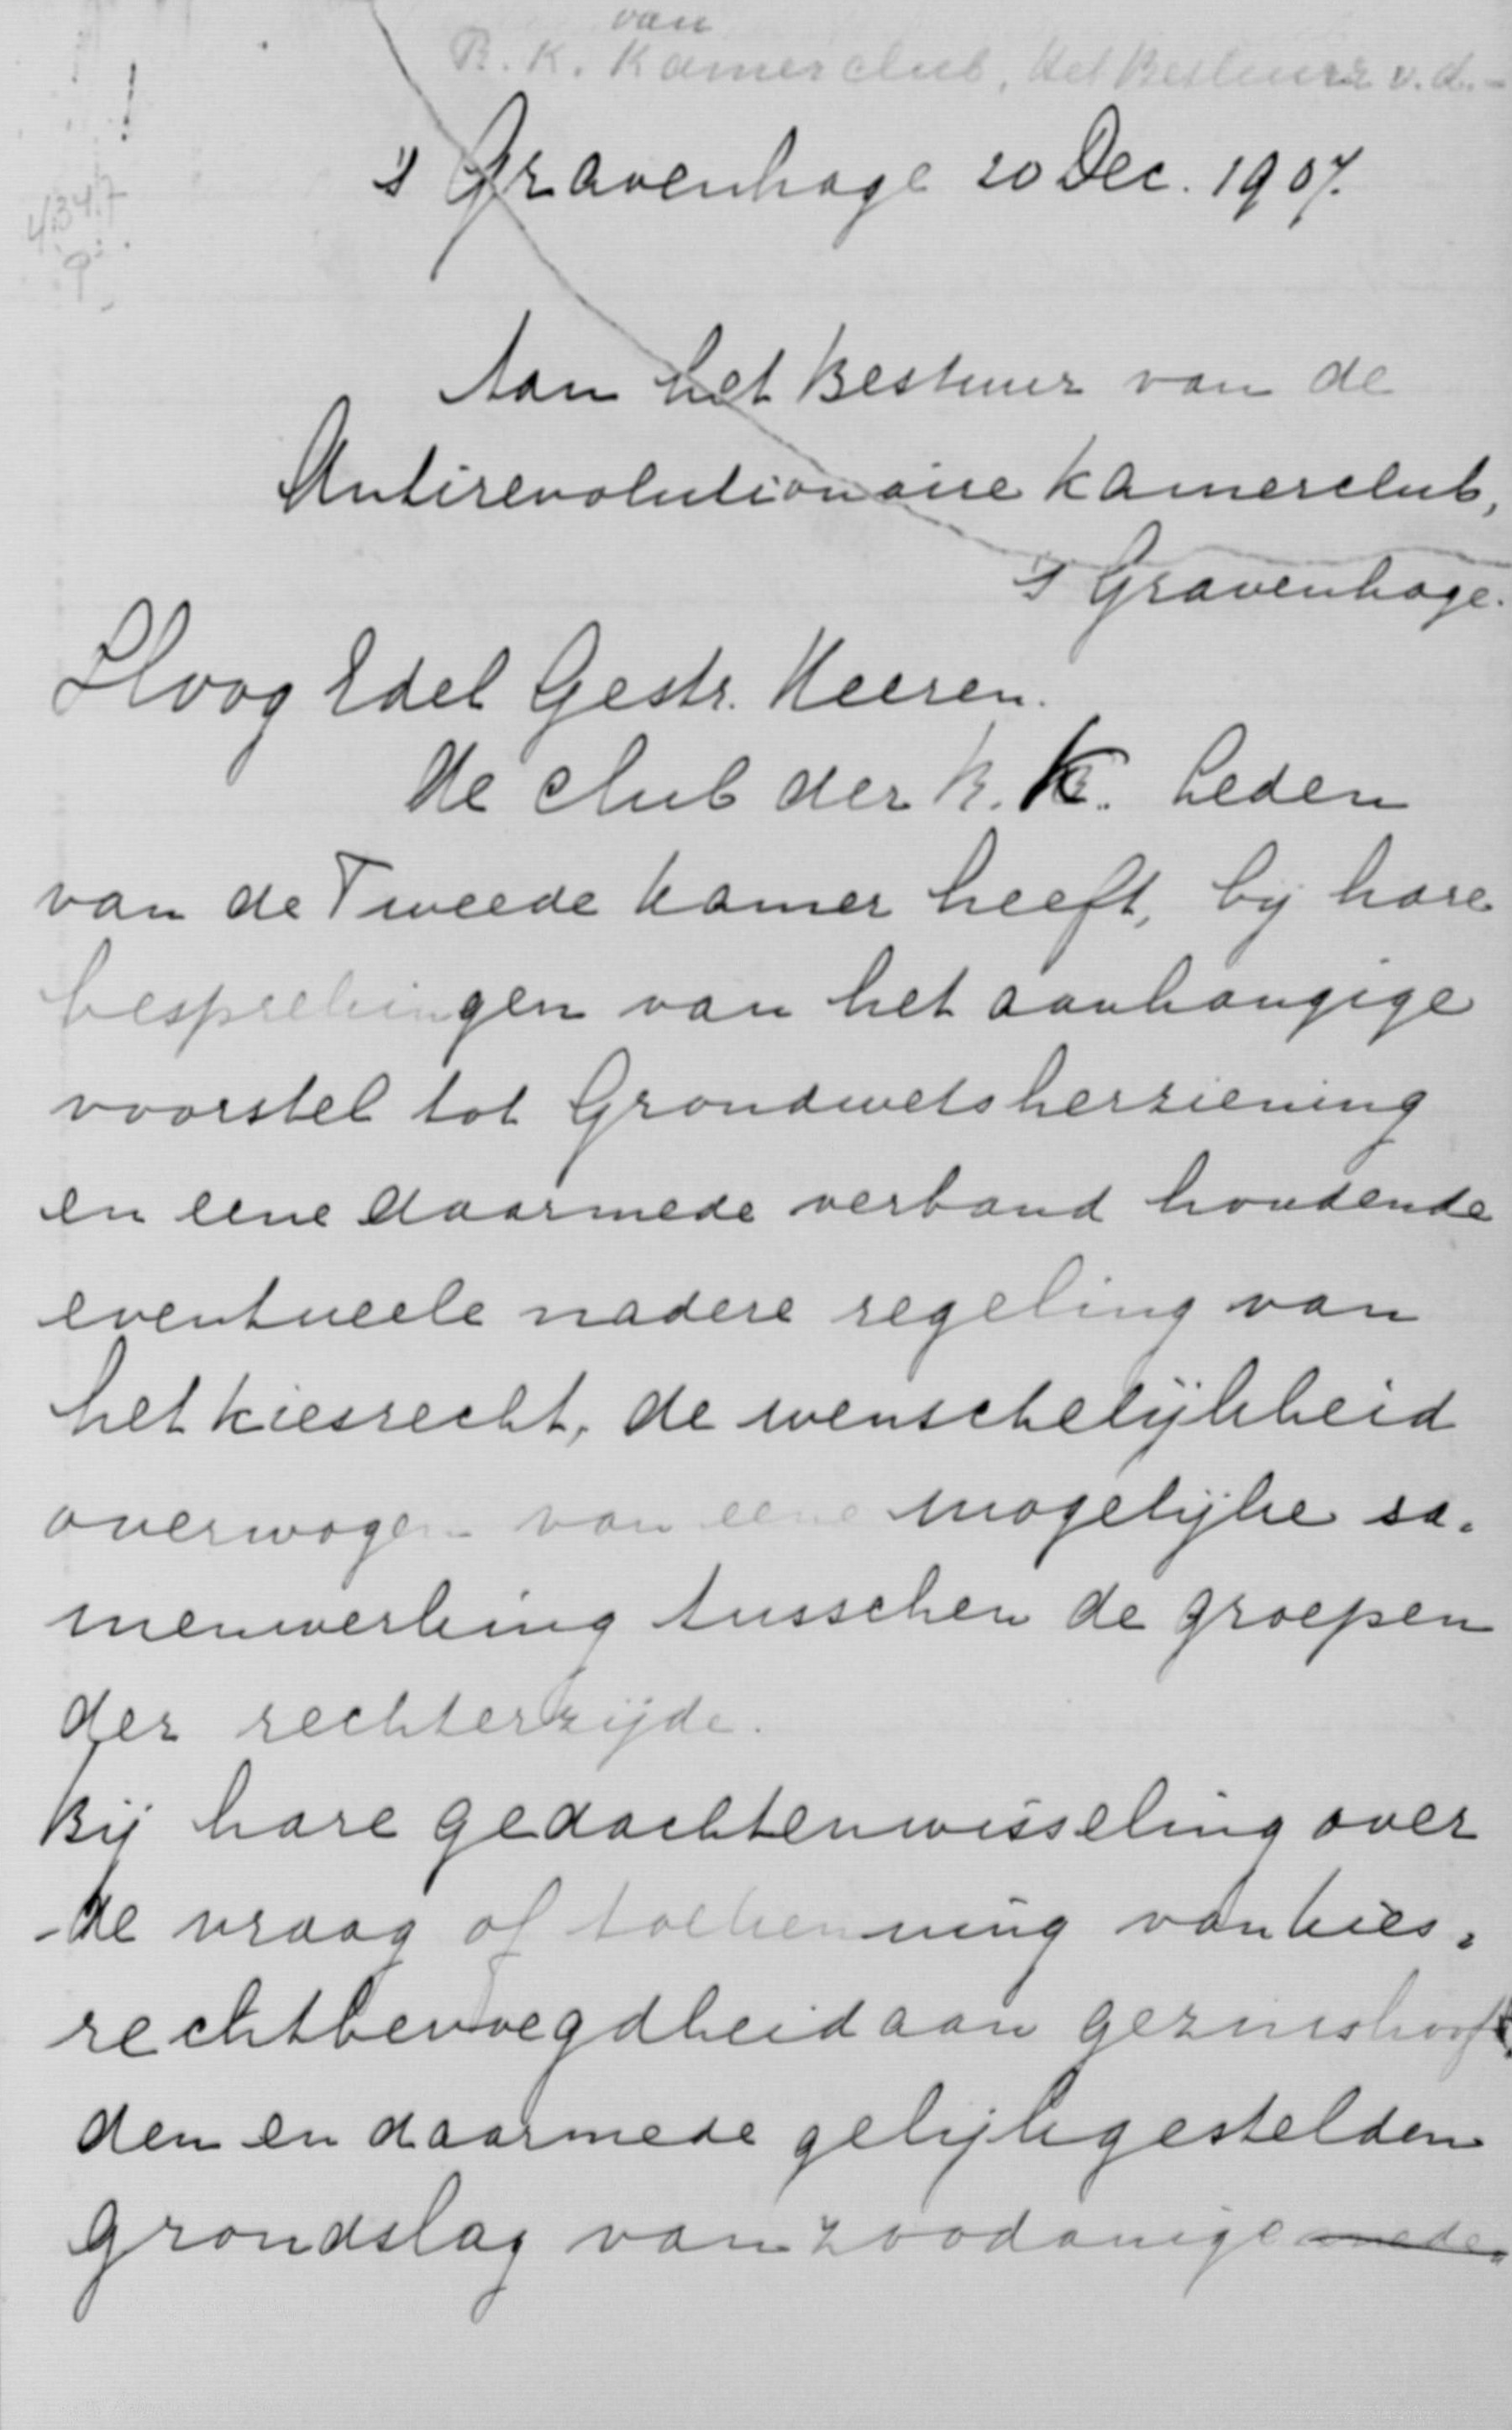 van
R. K. Kamerclub, Het Bestuur v. d. -
!
4347
's Gravenhage 20 Dec. 1907.
Aan het Bestuur van de
Antirevolutionaire Kamerclub,
's Gravenhage.
Hoog Edel Gestr. Heeren.
De club der R. K. Leden
van de Tweede Kamer heeft, bij hare
besprekingen van het aanhangige
voorstel tot Grondwetsherziening
en eene daarmede verband houdende
eventueele nadere regeling van
het kiesrecht, de wenschelijkheid
overwogen van eene mogelijke sa-
menwerking tusschen de groepen
der rechterzijde.
Bij hare gedachtenwisseling over
de vraag of toekenning van kies-
rechtbevoegdheid aan gezinshoof-
den en daarmede gelijkgestelden
grondslag van zoodanige mede-